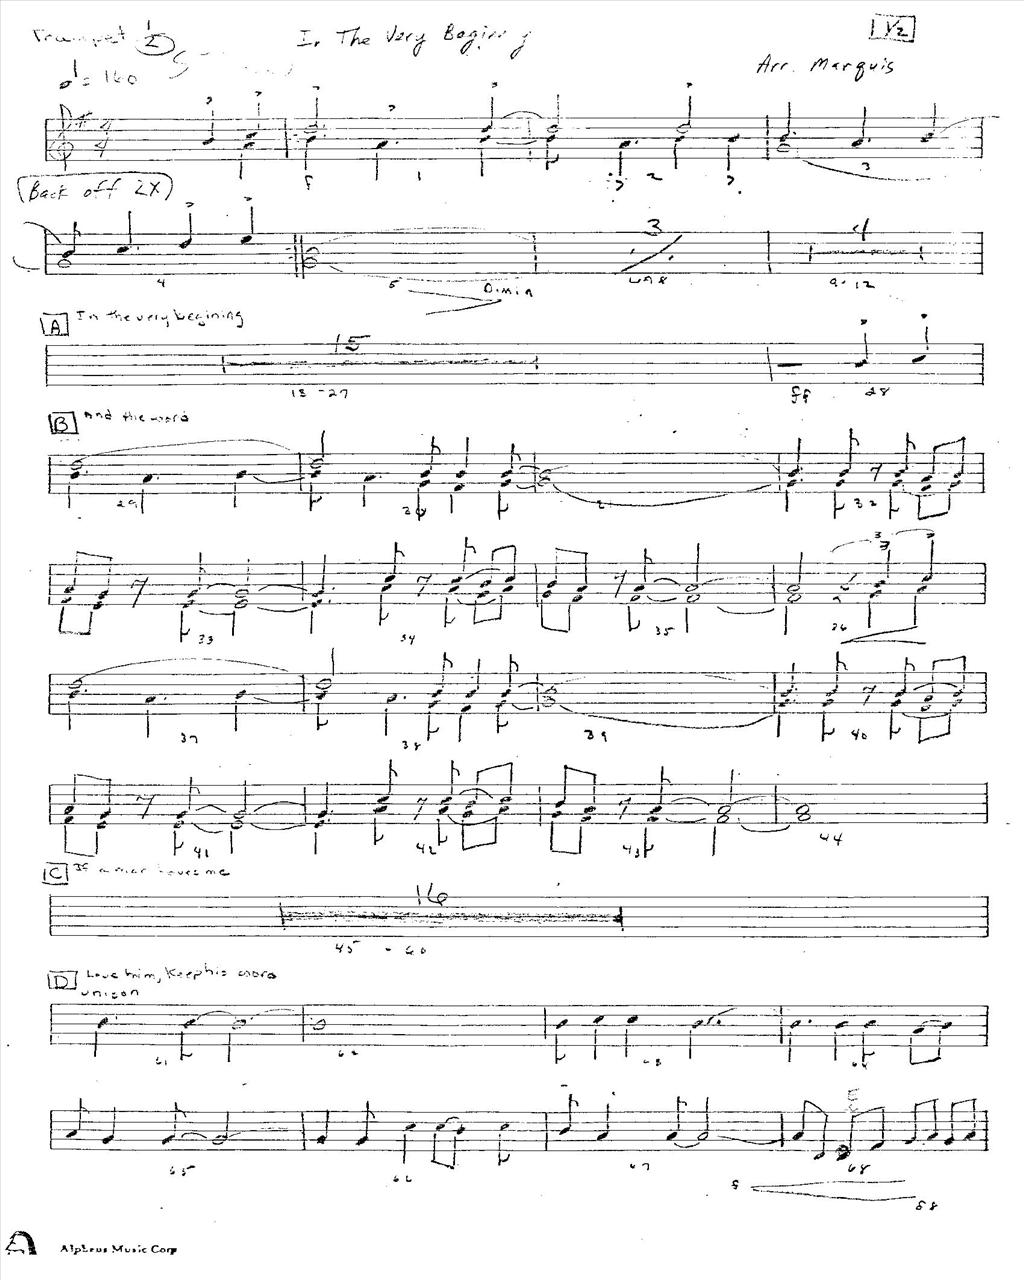 Trumpet 1/2
In The Very Begining
1/2
♩= 160
Arr. Marquis
4/4
f 1 2 3
Back off 2X
3 4
4 5 Dimin 6 7 8 9-12
A In the very begining
15
13 - 27 ff 28
B And the word
29 30 31 32
3
33 34 35 36
37 38 39 40
41 42 43 44
C If a man loves me
16
45 - 60
D Love him, Keep his word
unison
61 62 63 64
65 66 67 68
f ff
Alpheus Music Corp